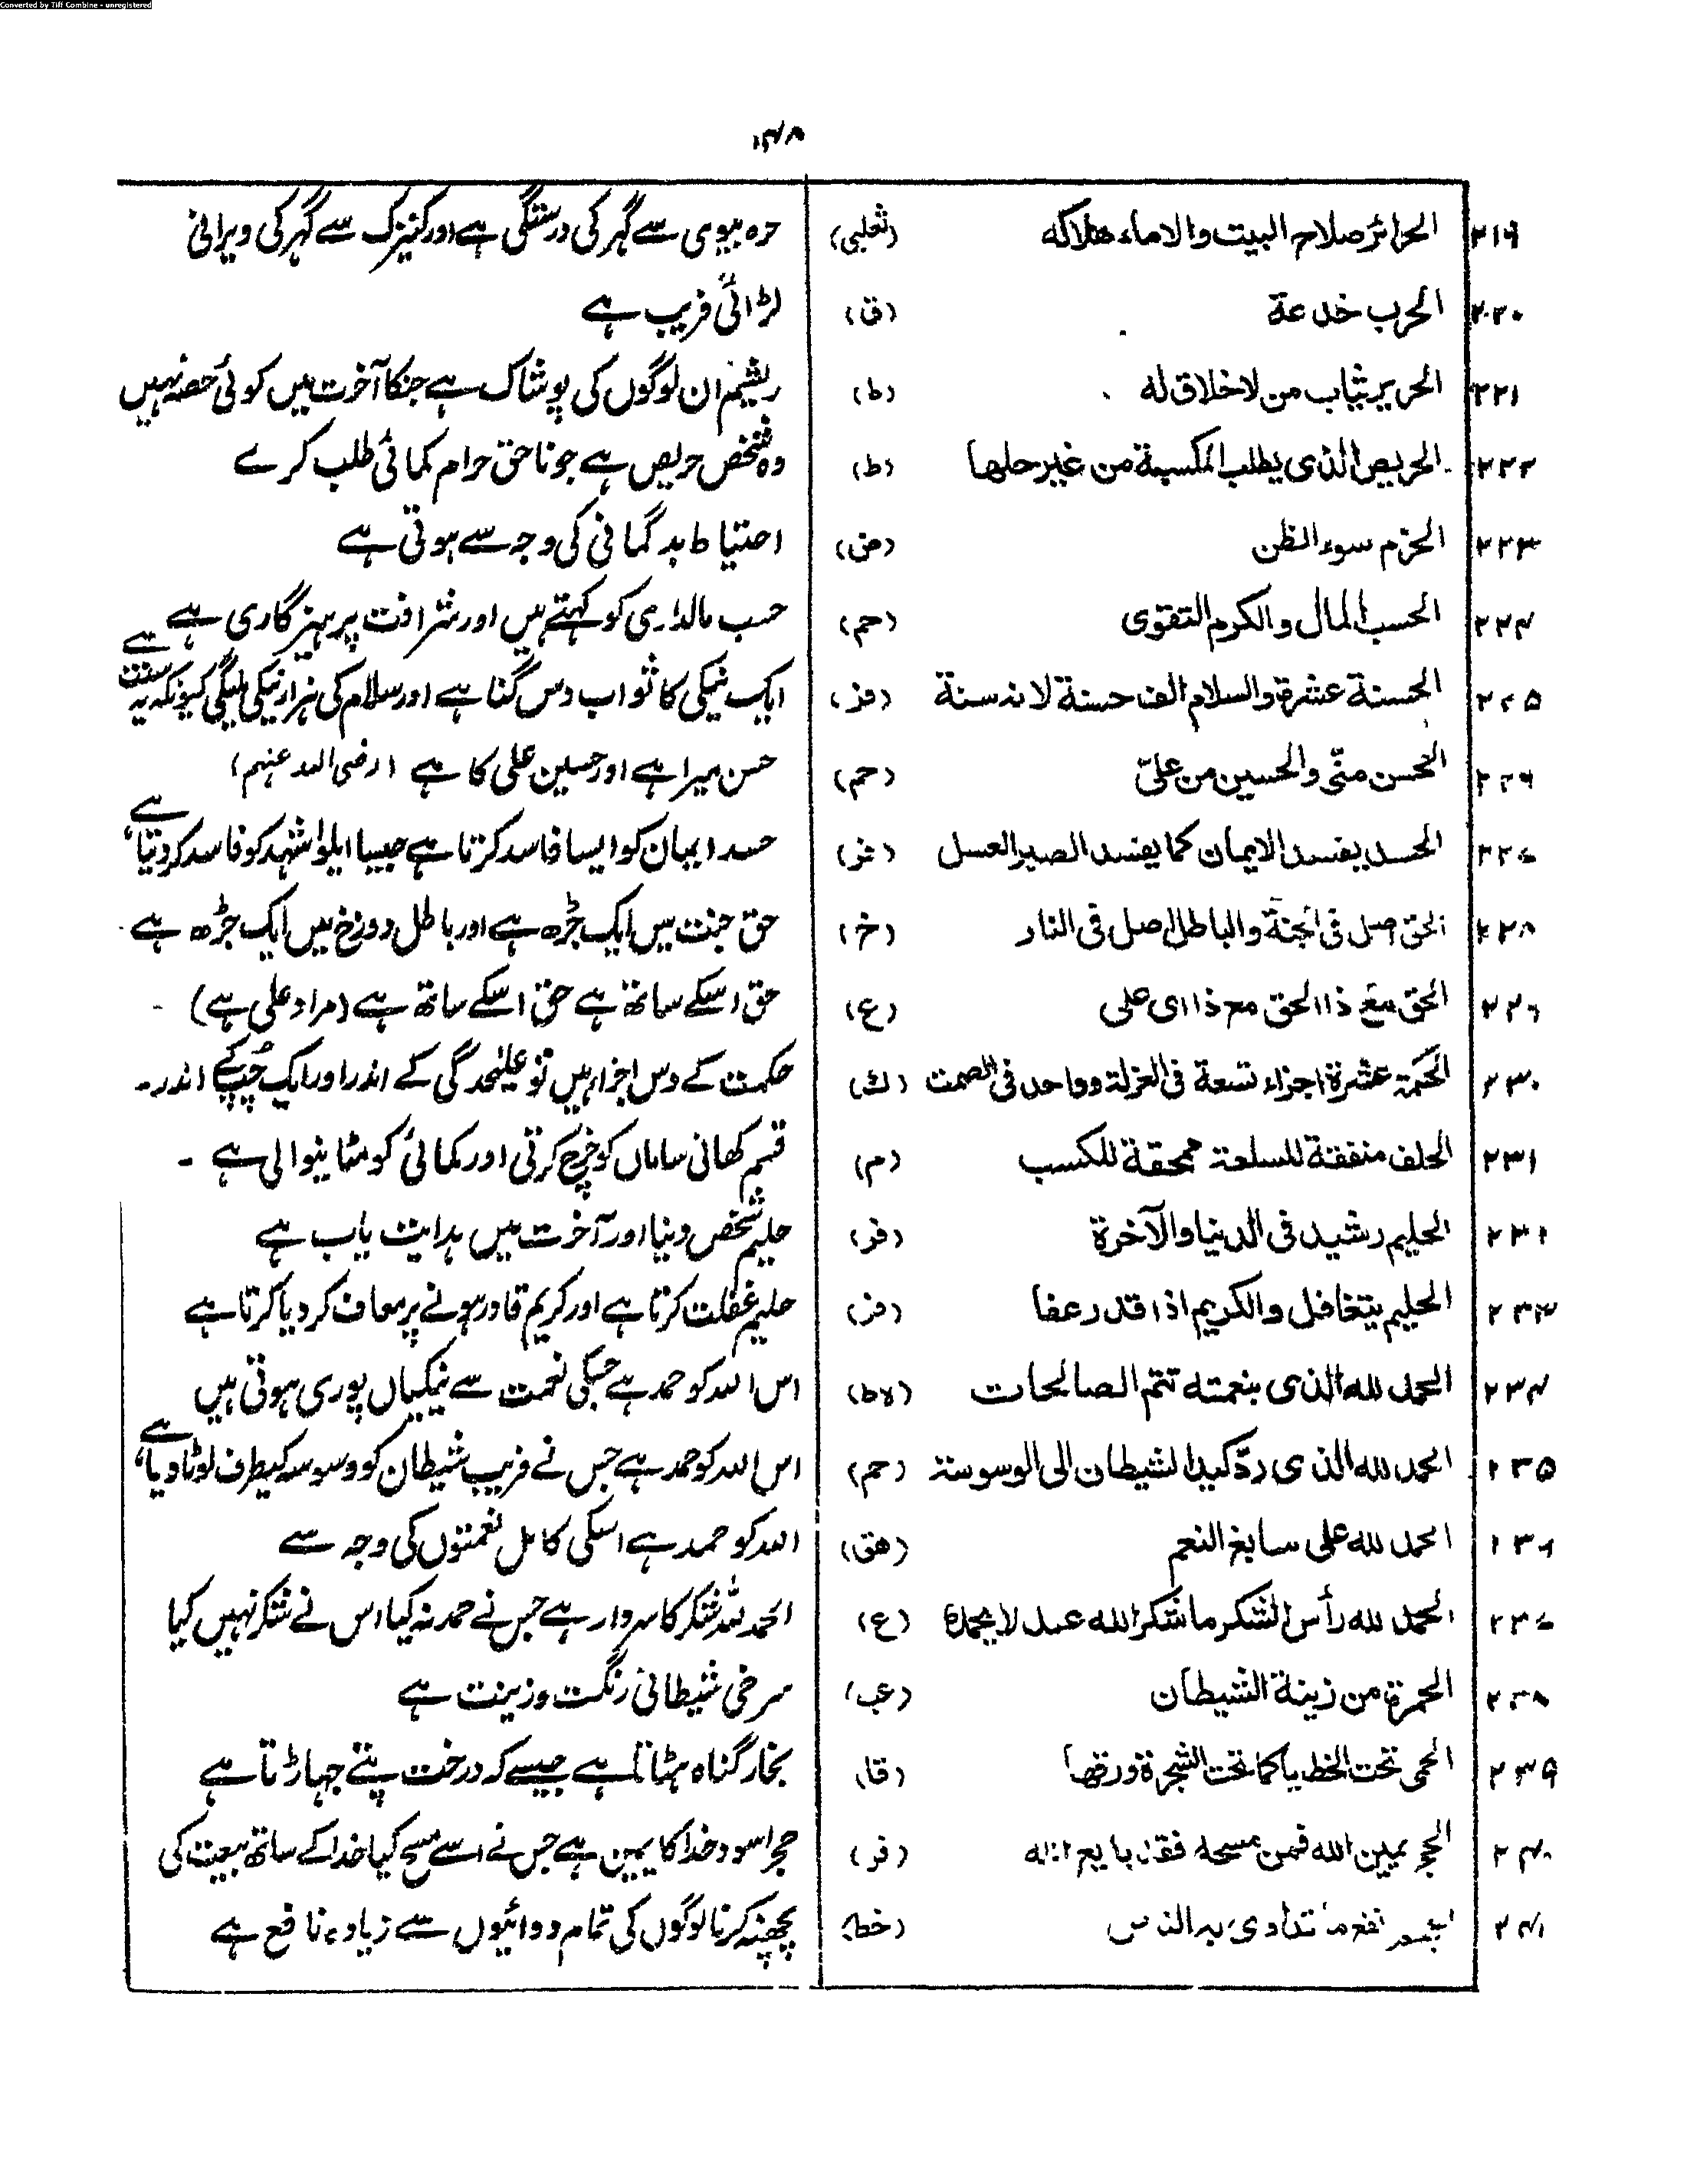 Converted by Tiff Combine - unregistered
۲۱۹ الحرائر صلاح البیت والاماء ھلاکه (ثعلبی) حرہ بیوی سے گہر کی درستگی ہے اور کنیزک سے گہر کی ویرانی
۲۲۰ الحرب خدعة (ق) لڑائی فریب ہے
۲۲۱ الحریر ثیاب من لا خلاق له (ط) ریشم ان لوگوں کی پوشاک ہے جنکا آخرت میں کوئی حصہ نہیں
۲۲۲ الحریص الذی یطلب المکسبة من غیر حلها (ط) وہ شخص حریص ہے جو ناحق حرام کمائی طلب کرے
۲۲۳ الحزم سوء الظن (ض) احتیاط بدگمانی کی وجہ سے ہوتی ہے
۲۲۴ الحسب المال والکرم التقوی (حم) حسب مالداری کو کہتے ہیں اور شرافت پرہیزگاری ہے
۲۲۵ الحسنة عشرة والسلام الف حسنة لانه سنة (فر) ایک نیکی کا ثواب دس گنا ہے اور سلام کی ہزار نیکی ملیگی کیونکہ یہ سنت ہے
۲۲۶ الحسن منّی والحسین من علیّ (حم) حسن میرا ہے اور حسین علی کا ہے (رضی اللہ عنہم)
۲۲۷ الحسد یفسد الایمان کما یفسد الصبر العسل (فر) حسد ایمان کو ایسا فاسد کرتا ہے جیسا ایلوا شہد کو فاسد کر دیتا ہے
۲۲۸ الحق اصل فی الجنة والباطل اصل فی النار (خ) حق جنت میں ایک جڑھ ہے اور باطل دوزخ میں ایک جڑھ ہے
۲۲۹ الحق مع ذا الحق مع ذا ای علی (ع) حق اسکے ساتھ ہے حق اسکے ساتھ ہے (مراد علی ہے)
۲۳۰ الحکمة عشرة اجزاء تسعة فی العزلة وواحد فی الصمت (ك) حکمت کے دس اجزا ہیں نو علیٰحدگی کے اندر اور ایک چپ کے اندر۔
۲۳۱ الحلف منفقة للسلعة ممحقة للکسب (م) قسم کھانی ساماں کو خرچ کرتی اور کمائی کو مٹانیوالی ہے ۔
۲۳۲ الحلیم رشید فی الدنیا والآخرة (فر) حلیم شخص دنیا اور آخرت میں ہدایت یاب ہے
۲۳۳ الحلیم یتغافل والکریم اذا قدر عفا (فر) حلیم غفلت کرتا ہے اور کریم قادر ہونے پر معاف کر دیا کرتا ہے
۲۳۴ الحمد لله الذی بنعمته تتم الصالحات (ہ ط) اس اللہ کو حمد ہے جسکی نعمت سے نیکیاں پوری ہوتی ہیں
۲۳۵ الحمد لله الذی ردّ کید الشیطان الی الوسوسة (حم) اس اللہ کو حمد ہے جس نے فریب شیطان کو وسوسہ کیطرف لوٹا دیا ہے
۲۳۶ الحمد لله علی سابغ النعم (هق) اللہ کو حمد ہے اسکی کامل نعمتوں کی وجہ سے
۲۳۷ الحمد لله رأس الشکر ما شکر الله عبد لا یحمده (ع) الحمد للہ شکر کا سردار ہے جس نے حمد نہ کیا اس نے شکر نہیں کیا
۲۳۸ الحمرة من زینة الشیطان (عب) سرخی شیطانی رنگت وزینت ہے
۲۳۹ الحمی تحت الخطایا کما تحت الشجرة ورقها (قا) بخار گناہ ہٹاتا ہے جیسے کہ درخت پتے جہاڑتا ہے
۲۴۰ الحجر یمین الله فمن مسحه فقد بایع الله (فر) حجر اسود خدا کا یمین ہے جس نے اسے مسح کیا خدا کے ساتھ بیعت کی
۲۴۱ انفع ما تداوی به الناس (خط) پچھنہ کرنا لوگوں کی تمام دوائیوں سے زیادہ نافع ہے